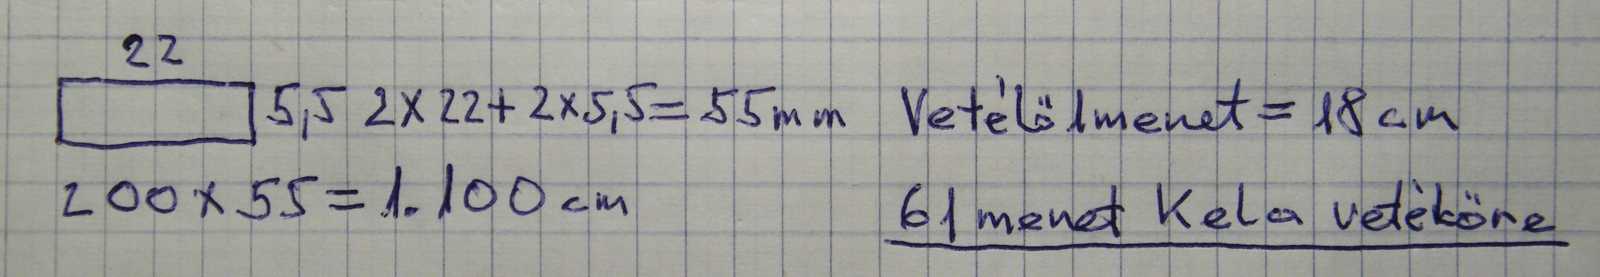 22
5,5 2×22+2×5,5=55mm Vetélő 1menet=18cm
200×55=1.100cm 61menet Kel a vetélőre